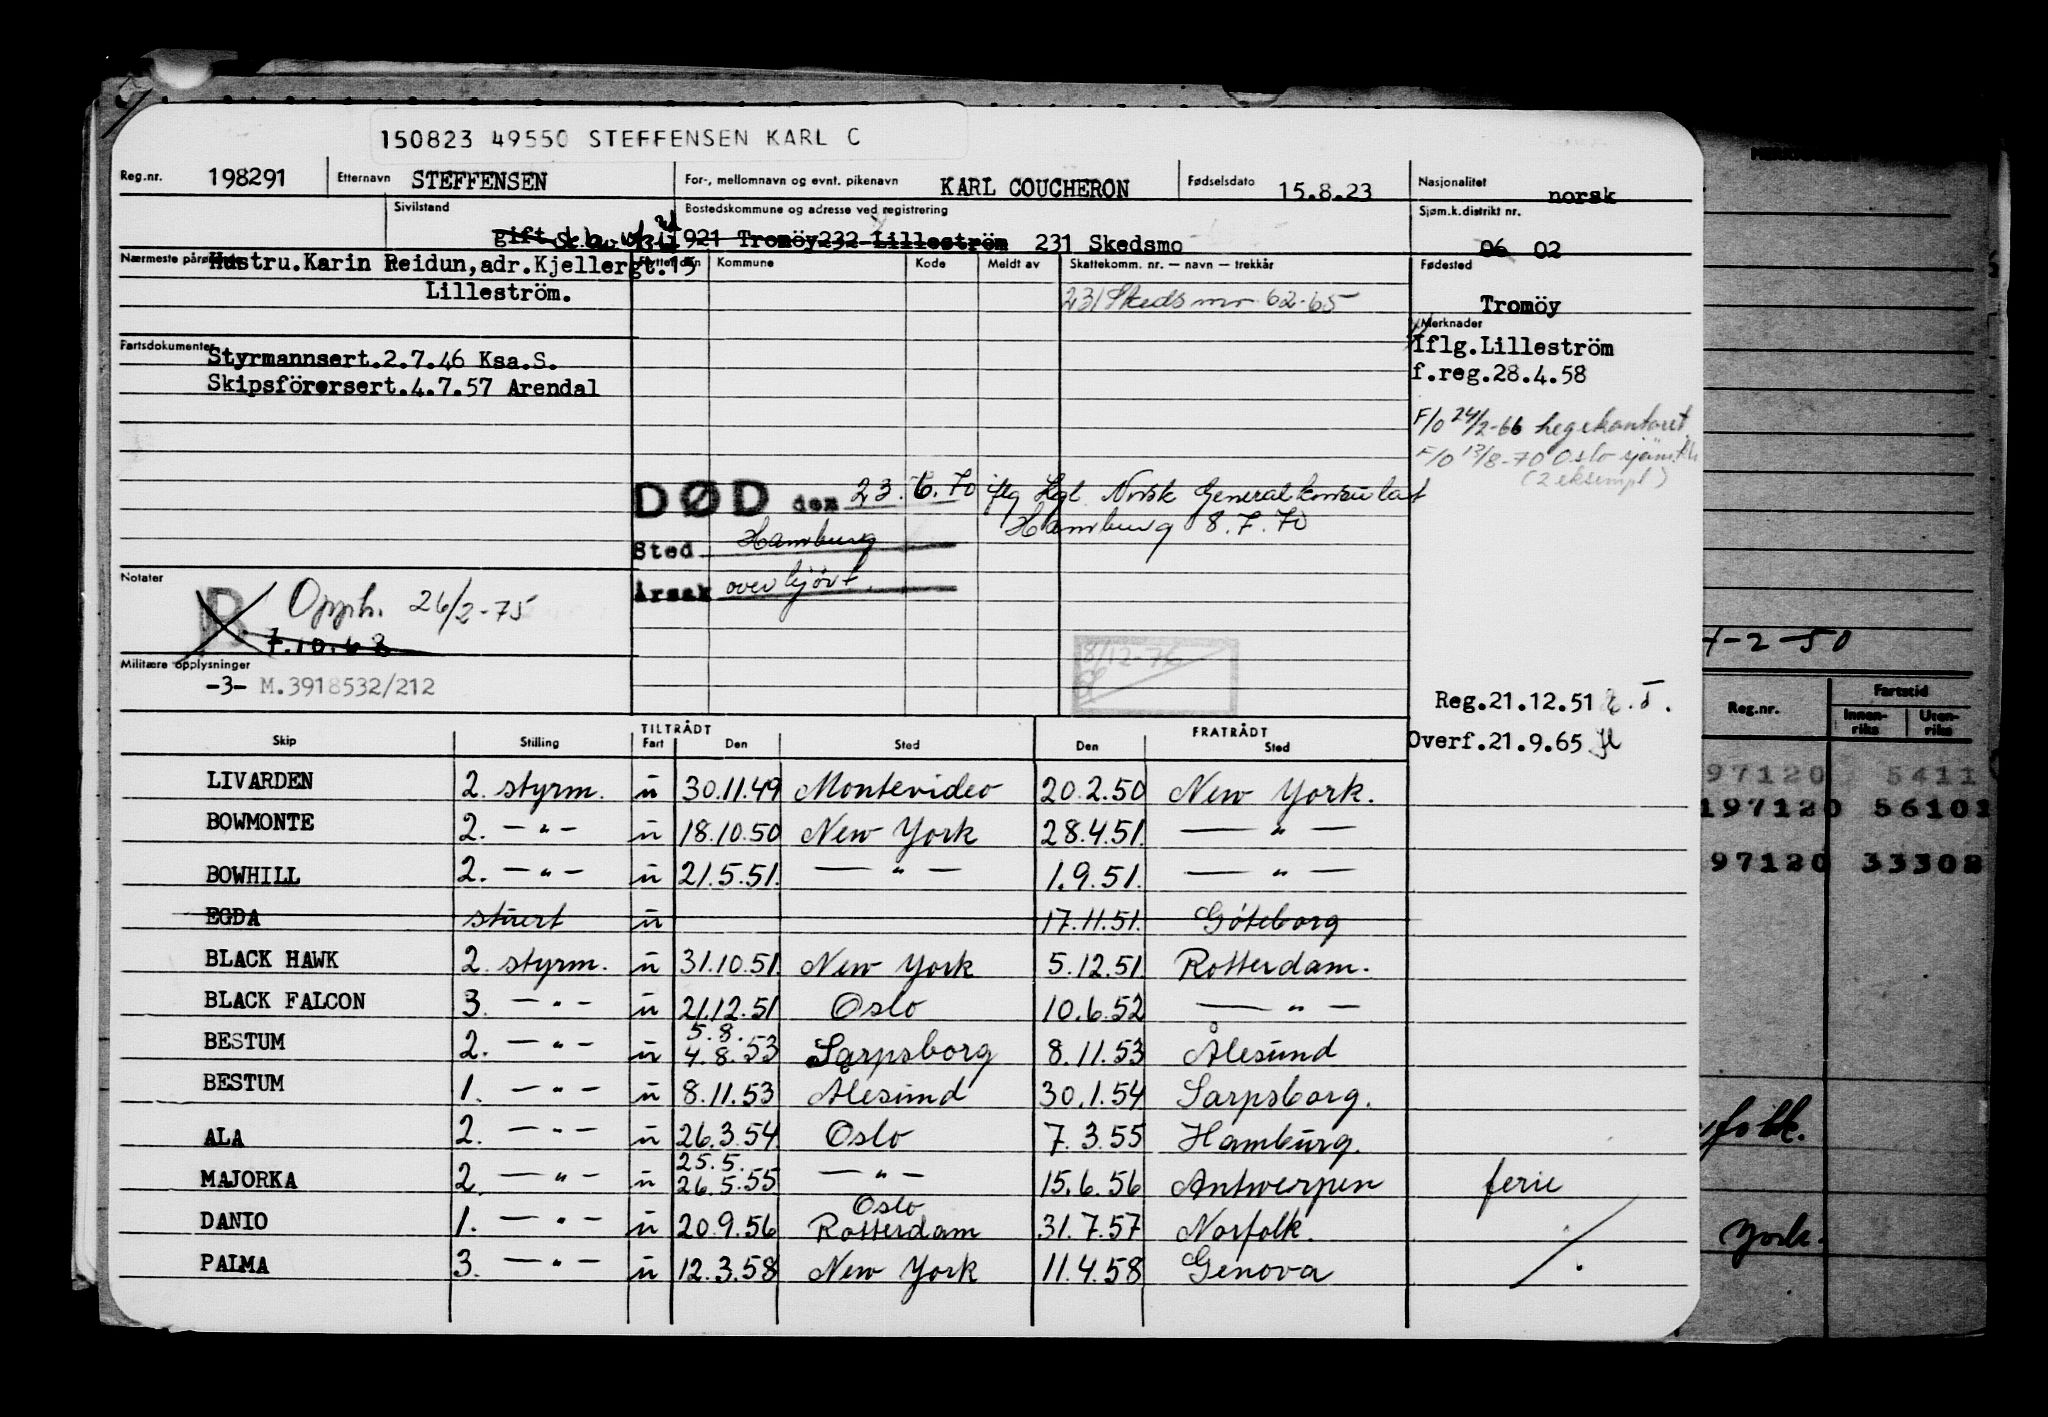 150823 49550 STEFFENSEN KARL C
Reg.nr. 198291 Etternavn STEFFENSEN For-, mellomnavn og evnt. pikenavn KARL COUCHERON Fødselsdato 15.8.23 Nasjonalitet norsk
Sivilstand gift Bostedskommune og adresse ved registrering 921 Tromöy 232 Lilleström 231 Skedsmo Sjøm.k.distrikt nr. 06 02
Nærmeste pårørende Hustru.Karin Reidun,adr.Kjellergt.15
Lilleström.
Kommune Kode Meldt av Skattekomm. nr. — navn — trekkår Fødested
231 Skedsmo 62-65 Tromöy
Merknader
Iflg.Lilleström
f.reg.28.4.58
Fartsdokumenter
Styrmannsert.2.7.46 Ksa.S.
Skipsförersert.4.7.57 Arendal
F/O 24/2-66 hegekontoret
F/O 13/8-70 Oslo sjøm.k.
(2 eksempl)
DØD den 23.6.70 iflg Kgl Norsk Generalkonsulat
Hamburg 8.7.70
Sted Hamburg
Årsak overkjørt.
Notater
B Opph. 26/2-75
7.10.63
Militære opplysninger
-3- M.3918532/212
8/12-76
Reg.21.12.51
Overf.21.9.65
Skip Stilling TILTRÅDT Fart Den Sted FRATRÅDT Den Sted
LIVARDEN 2. styrm. u 30.11.49 Montevideo 20.2.50 New York.
BOWMONTE 2. — " — u 18.10.50 New York 28.4.51. — " —
BOWHILL 2. — " — u 21.5.51. — " — 1.9.51. — " —
EGDA stuert u 17.11.51. Göteborg
BLACK HAWK 2. styrm. u 31.10.51 New York 5.12.51. Rotterdam.
BLACK FALCON 3. — " — u 21.12.51 Oslo 10.6.52 — " —
5.8.
BESTUM 2. — " — u 4.8.53 Sarpsborg 8.11.53 Ålesund
BESTUM 1. — " — u 8.11.53 Ålesund 30.1.54 Sarpsborg.
ALA 2. — " — u 26.3.54 Oslo 7.3.55 Hamburg.
25.5.
MAJORKA 2. — " — u 26.5.55 — " — 15.6.56 Antwerpen ferie
Oslo
DANIO 1. — " — u 20.9.56 Rotterdam 31.7.57 Norfolk.
PALMA 3. — " — u 12.3.58 New York 11.4.58 Genova
-2-50
Reg.nr. Fartstid
Innen-riks Uten-riks
97120 5411
197120 56101
97120 33302
folk.
York.